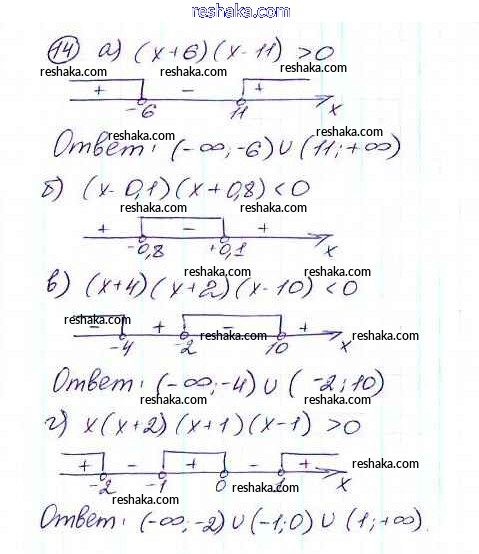 reshaka.com
14 а) (x+6)(x-11) >0
reshaka.com reshaka.com reshaka.com
+ - +
-6 11 x
reshaka.com reshaka.com
Ответ: (-∞;-6)∪(11;+∞)
reshaka.com
б) (x-0,1)(x+0,8)<0
reshaka.com reshaka.com
+ - +
-0,8 +0,1 x
reshaka.com reshaka.com
reshaka.com
в) (x+4)(x+2)(x-10)<0
reshaka.com
reshaka.com reshaka.com reshaka.com
- + - +
-4 -2 10 x
reshaka.com
Ответ: (-∞;-4)∪(-2;10)
reshaka.com
г) x(x+2)(x+1)(x-1) >0
reshaka.com reshaka.com
+ - + - +
reshaka.com
-2 -1 0 1 x
reshaka.com reshaka.com
Ответ: (-∞;-2)∪(-1;0)∪(1;+∞).
reshaka.com